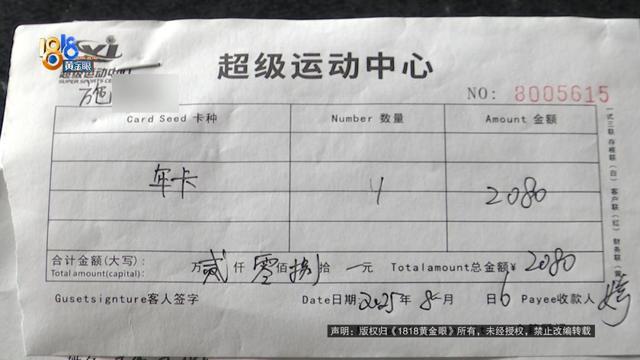 1818
黄金眼
超级运动中心
SUPER SPORTS CE
超级运动中心
NO: 8005615
Card Seed 卡种 Number 数量 Amount 金额
年卡 4 2080
合计金额(大写): 万贰仟零佰捌拾一元 Totalamount总金额¥ 2080
Totalamount(capital):
Gusetsignture客人签字 Date日期 2025年8月 日6 Payee收款人
一式三联 存根联(白) 客户联(红) 财务联
声明:版权归《1818黄金眼》所有,未经授权,禁止改编转载